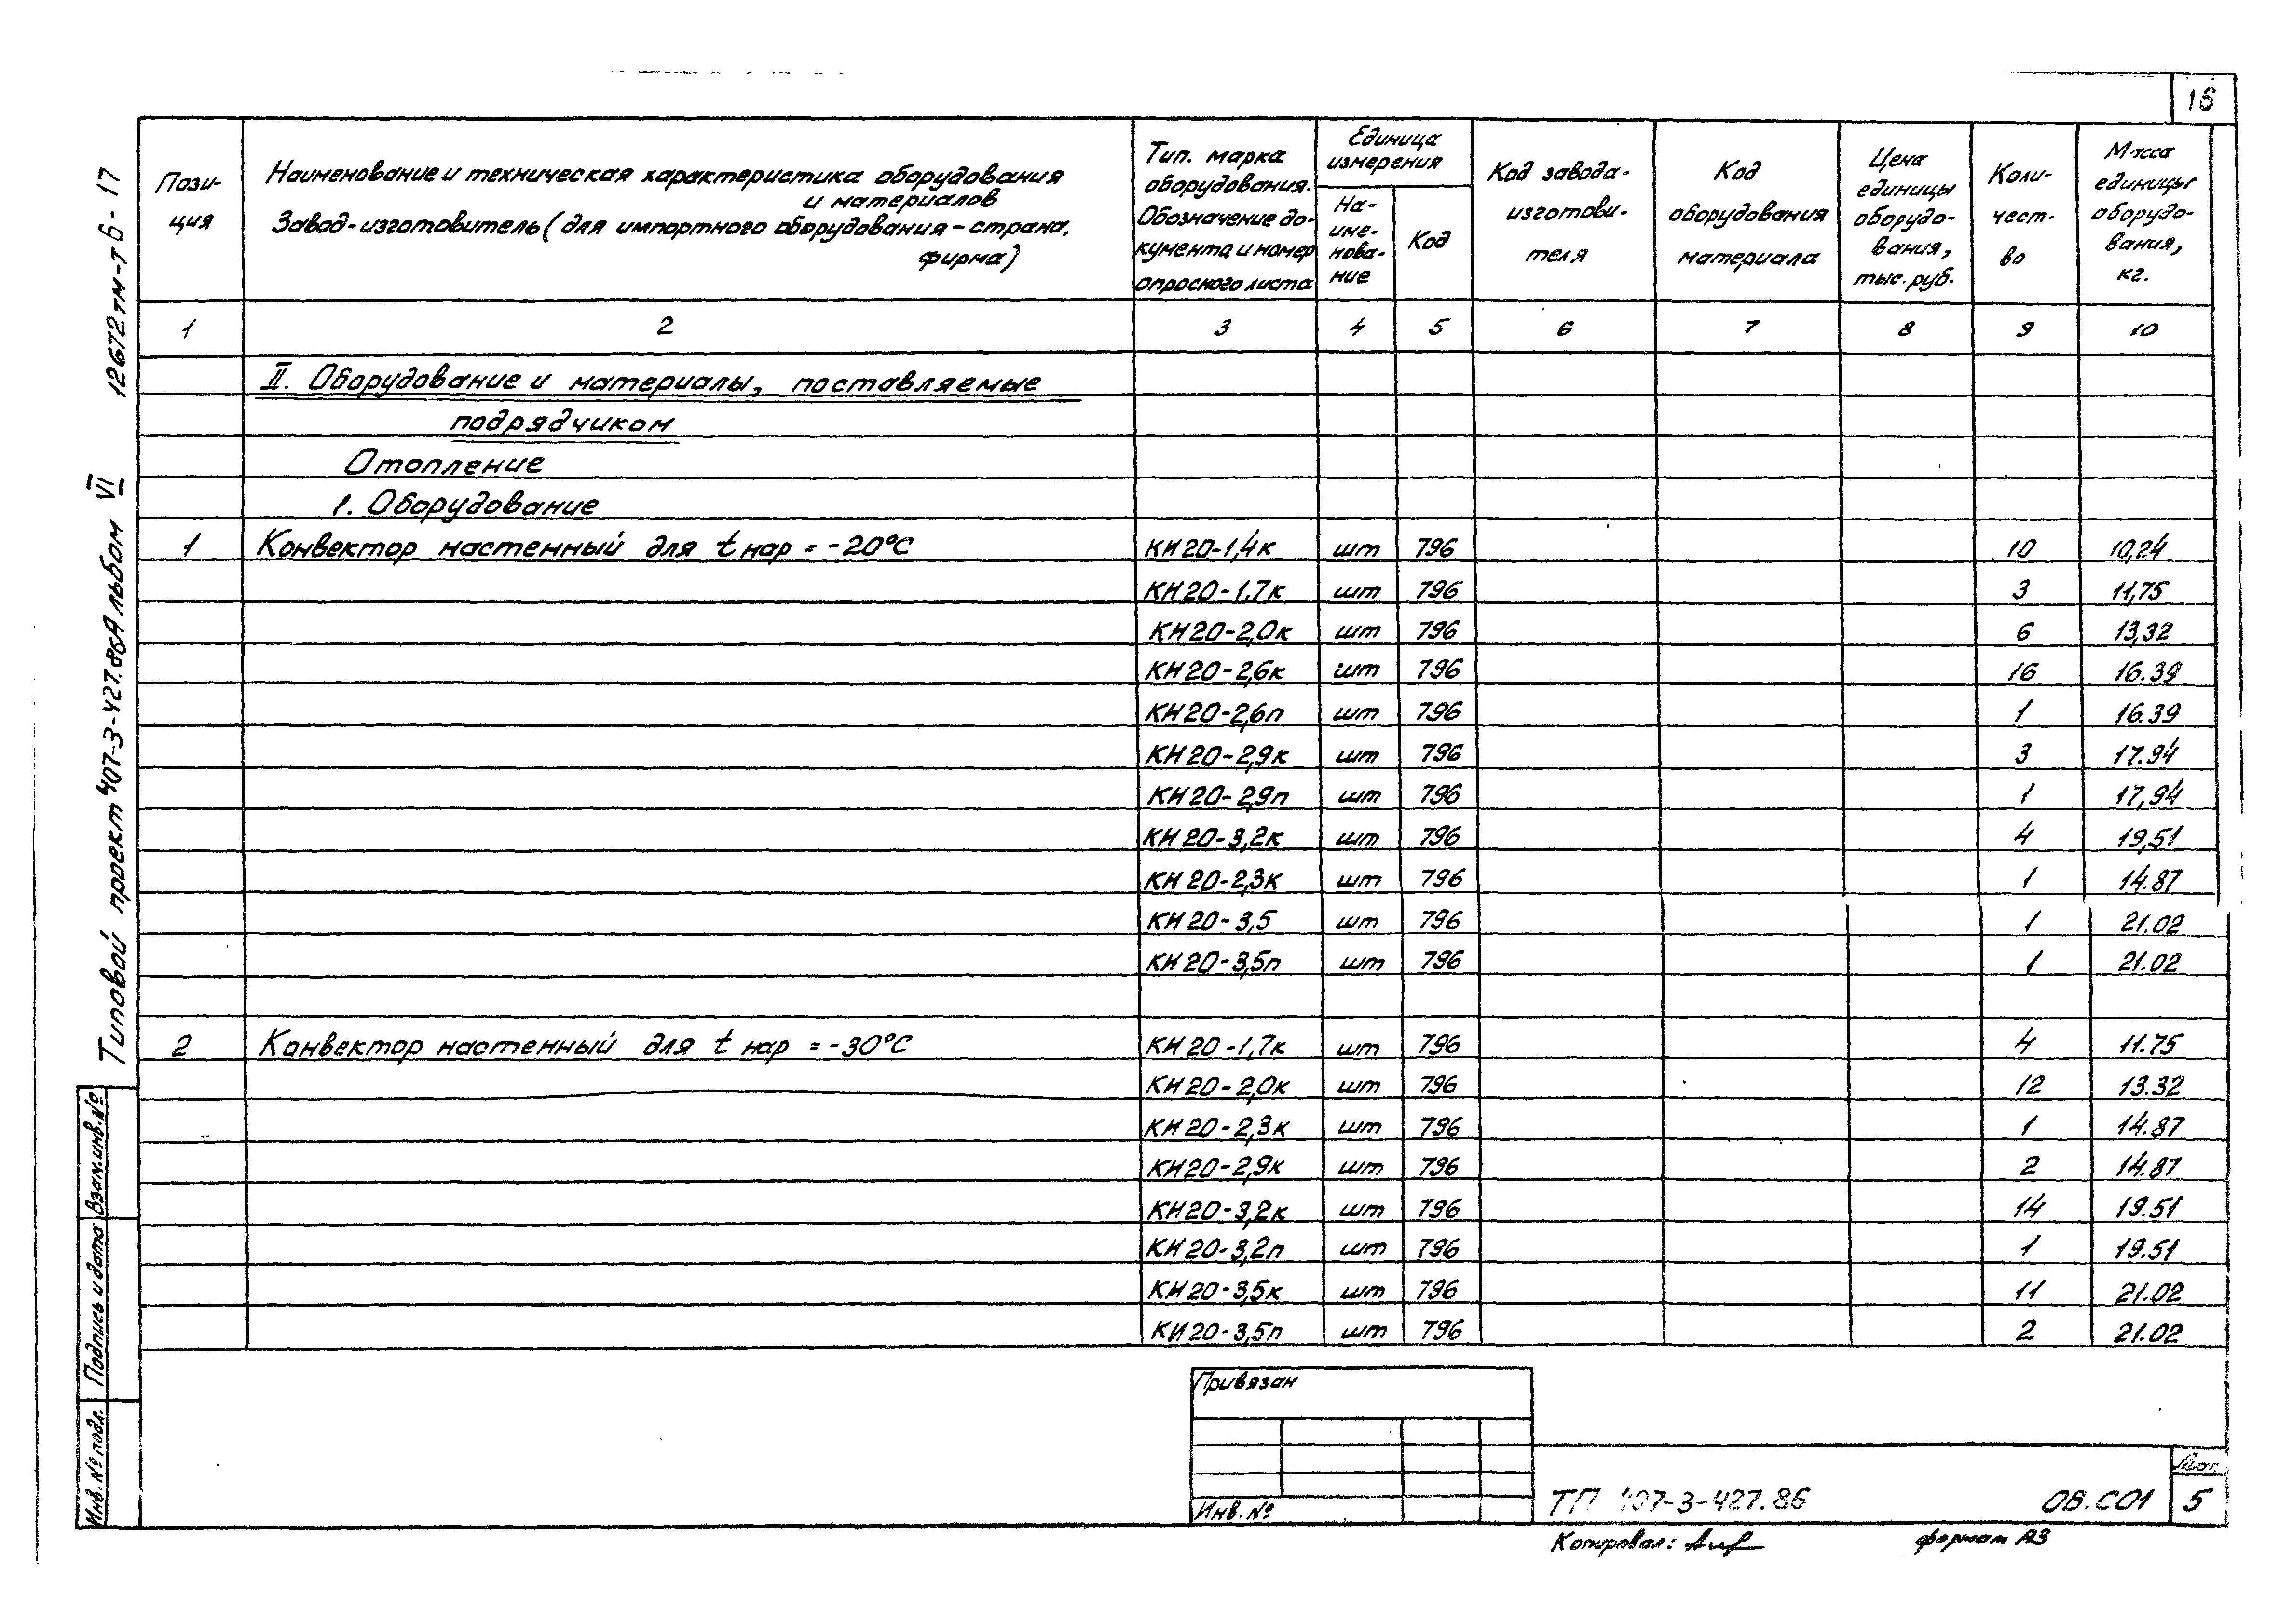 16
Пози-
ция
Наименование и техническая характеристика оборудования
и материалов
Завод-изготовитель (для импортного оборудования - страна,
фирма)
Тип. марка
оборудования.
Обозначение до-
кумента и номер
опросного листа
Единица
измерения
На-
име-
нова-
ние
Код
Код завода-
изготови-
теля
Код
оборудования
материала
Цена
единицы
оборудо-
вания,
тыс. руб.
Коли-
чест-
во
Масса
единицы
оборудо-
вания,
кг.
1 2 3 4 5 6 7 8 9 10
II. Оборудование и материалы, поставляемые
подрядчиком
Отопление
1. Оборудование
1 Конвектор настенный для t нар = -20°С КН 20-1,4к шт 796 10 10,24
КН 20-1,7к шт 796 3 11,75
КН 20-2,0к шт 796 6 13,32
КН 20-2,6к шт 796 16 16.39
КН 20-2,6п шт 796 1 16.39
КН 20-2,9к шт 796 3 17.94
КН 20-2,9п шт 796 1 17,94
КН 20-3,2к шт 796 4 19,51
КН 20-2,3к шт 796 1 14.87
КН 20-3,5 шт 796 1 21.02
КН 20-3,5п шт 796 1 21.02
2 Конвектор настенный для t нар = -30°С КН 20-1,7к шт 796 4 11.75
КН 20-2,0к шт 796 12 13.32
КН 20-2,3к шт 796 1 14.87
КН 20-2,9к шт 796 2 14.87
КН 20-3,2к шт 796 14 19.51
КН 20-3,2п шт 796 1 19.51
КН 20-3,5к шт 796 11 21.02
КН 20-3,5п шт 796 2 21.02
Типовой проект 407-3-427.86 Альбом VI 12672тм-т6-17
Взам.инв.№
Подпись и дата
Инв.№ подл.
Привязан
Инв.№
ТП 407-3-427.86 ОВ.СО1
Лист
5
Копировал: формат А3